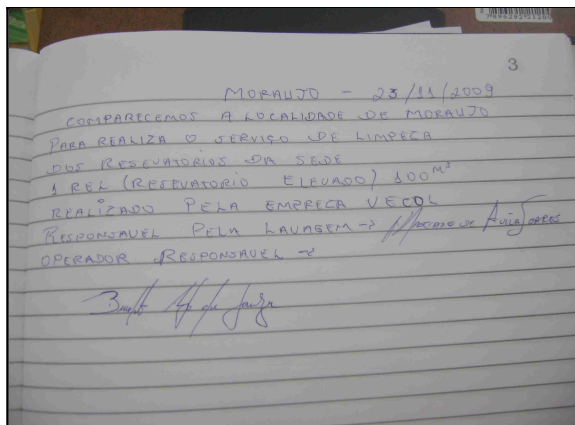 7896292313
3
MORAUJO - 23/11/2009
COMPARECEMOS A LOCALIDADE DE MORAUJO
PARA REALIZA O SERVIÇO DE LIMPEZA
DOS RESEVATORIOS DA SEDE
1 REL (RESEVATORIO ELEVADO) 100M³
REALIZADO PELA EMPRECA VECOL
RESPONSAVEL PELA LAVAGEM → SOARES
OPERADOR RESPONSAVEL →